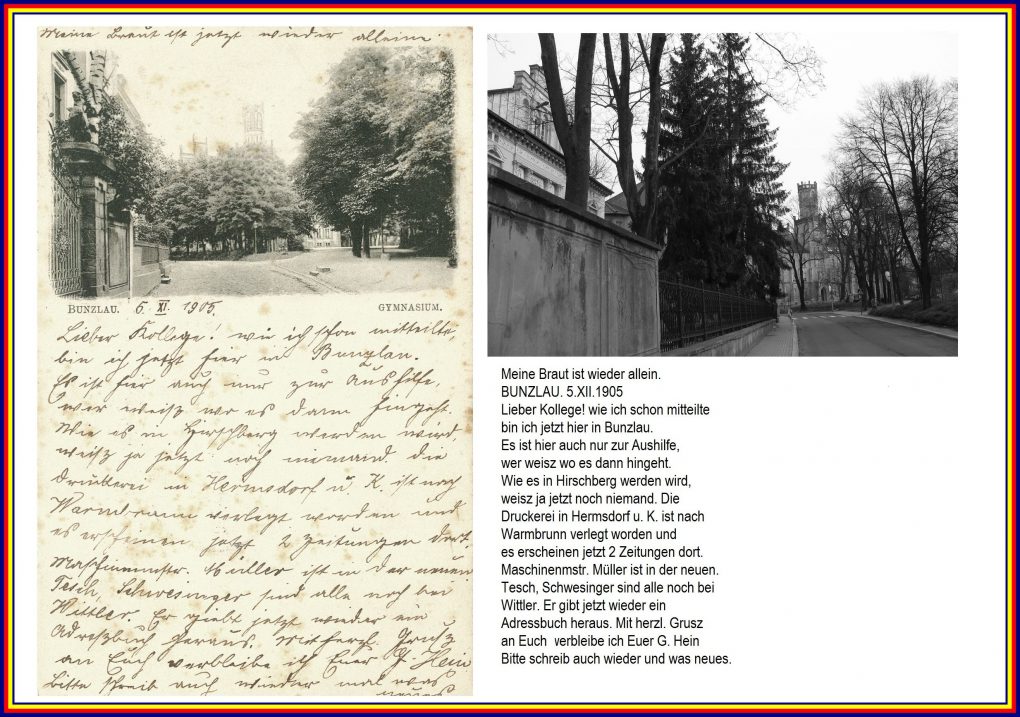 Meine Braut ist jetzt wieder alleine.
BUNZLAU. 6. XI. 1905. GYMNASIUM.
Lieber Kollege! wie ich schon mitteilte,
bin ich jetzt hier in Bunzlau.
Es ist hier auch nur zur Aushilfe,
wer weiß wo es dann hingeht.
Wie es in Hirschberg werden wird,
weiß ja jetzt noch niemand. die
Druckerei in Hermsdorf u. K. ist nach
Warmbrunn verlegt worden und
es erscheinen jetzt 2 Zeitungen dort.
Maschinenmstr. Müller ist in der neuen
Tesch, Schwesinger sind alle noch bei
Wittler. Er giebt jetzt wieder ein
Adreßbuch heraus. Mit herzl. Grusz
an Euch verbleibe ich Euer G. Hein
Bitte schreib auch wieder mal was
neues
Meine Braut ist wieder allein.
BUNZLAU. 5.XII.1905
Lieber Kollege! wie ich schon mitteilte
bin ich jetzt hier in Bunzlau.
Es ist hier auch nur zur Aushilfe,
wer weisz wo es dann hingeht.
Wie es in Hirschberg werden wird,
weisz ja jetzt noch niemand. Die
Druckerei in Hermsdorf u. K. ist nach
Warmbrunn verlegt worden und
es erscheinen jetzt 2 Zeitungen dort.
Maschinenmstr. Müller ist in der neuen.
Tesch, Schwesinger sind alle noch bei
Wittler. Er gibt jetzt wieder ein
Adressbuch heraus. Mit herzl. Grusz
an Euch verbleibe ich Euer G. Hein
Bitte schreib auch wieder und was neues.